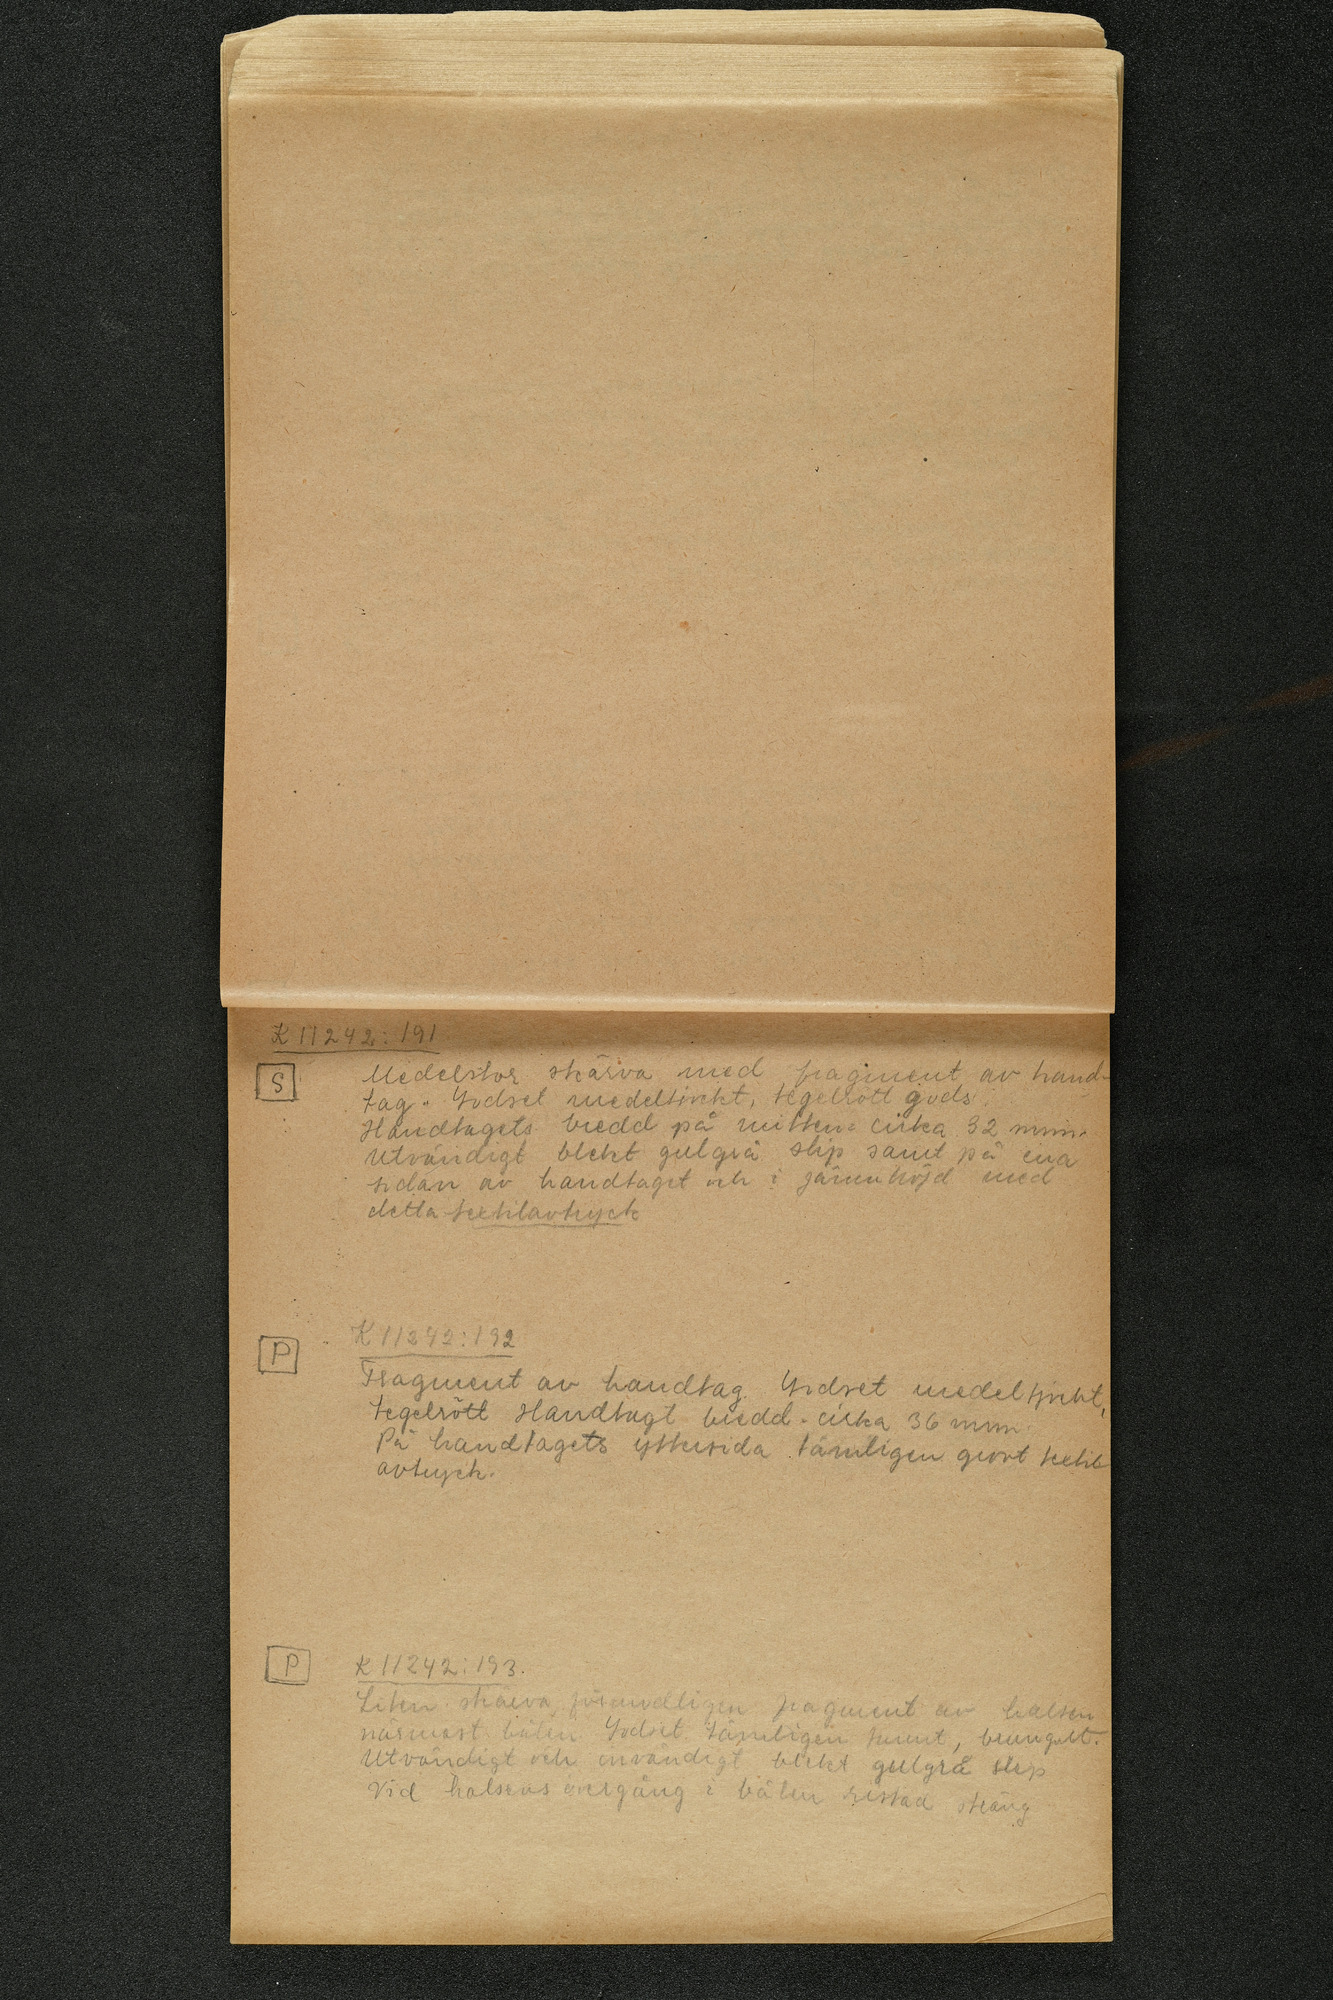 K 11242:191
S
Medelstor skärva med fragment av hand-
tag. Godset medeltjockt, tegelrött gods.
Handtagets bredd på mitten: cirka 32 mm.
Utvändigt blekt gulgrå slip samt på ena
sidan av handtaget och i jämnhöjd med
detta textilavtryck
K 11242:192
P
Fragment av handtag. Godset medeltjockt,
tegelrött Handtagt bredd - cirka 36 mm
På handtagets yttersida tämligen grovt textil
avtryck.
P
K 11242:193.
Liten skärva, förmodligen fragment av halsen
närmast bålen Godset tämligen tunnt, brungult.
Utvändigt och invändigt blekt gulgrå slip
Vid halsens övergång i bålen ristad sträng